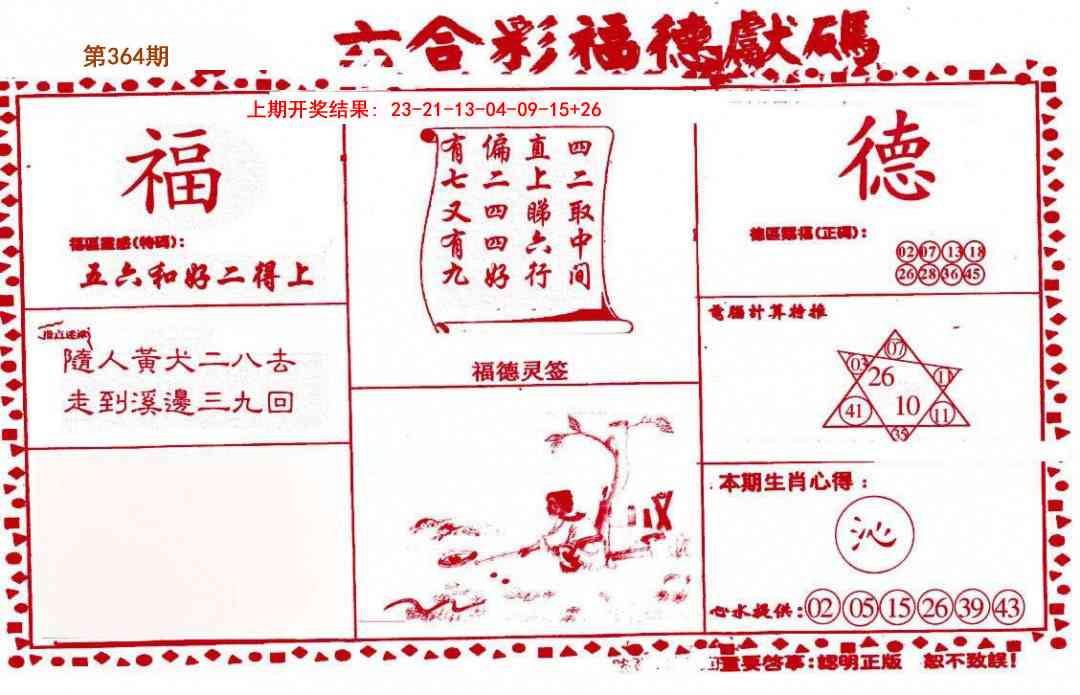 第364期
六合彩福德獻碼
上期开奖结果：23-21-13-04-09-15+26
福
福區靈感(特碼)：
五六和好二得上
隨人黃犬二八去
走到溪邊三九回
四二取中间
直上睇六行
偏二四四好
有七又有九
福德灵签
德
德區賜福(正碼)：
02 07 13 18
26 28 36 45
電腦計算特推
07
03 26 11
41 10 11
35
本期生肖心得：
沁
心水提供：02 05 15 26 39 43
重要啓事：認明正版 恕不致誤！